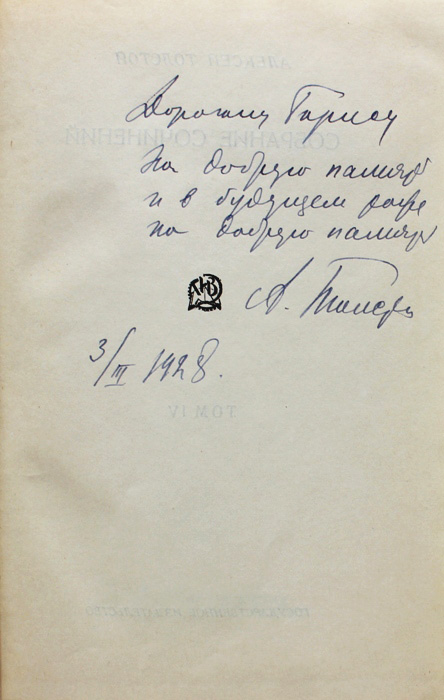 АЛЕКСЕЙ ТОЛСТОЙ
СОБРАНИЕ СОЧИНЕНИЙ
Дорогому
На добрую память
и в будущем
на добрую память
А. Толстой
3/III 1928.
ТОМ IV
ГОСУДАРСТВЕННОЕ ИЗДАТЕЛЬСТВО